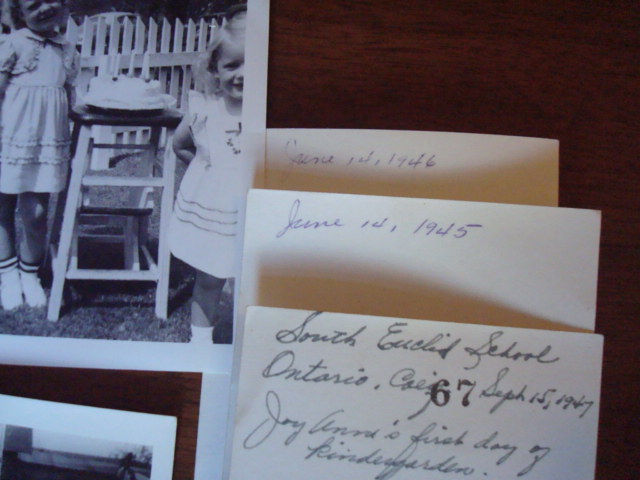 June 14, 1946
June 14, 1945
South Euclid School
Ontario, Calif Sept. 15, 1947
67
Joy Anne's first day of
kindergarden.